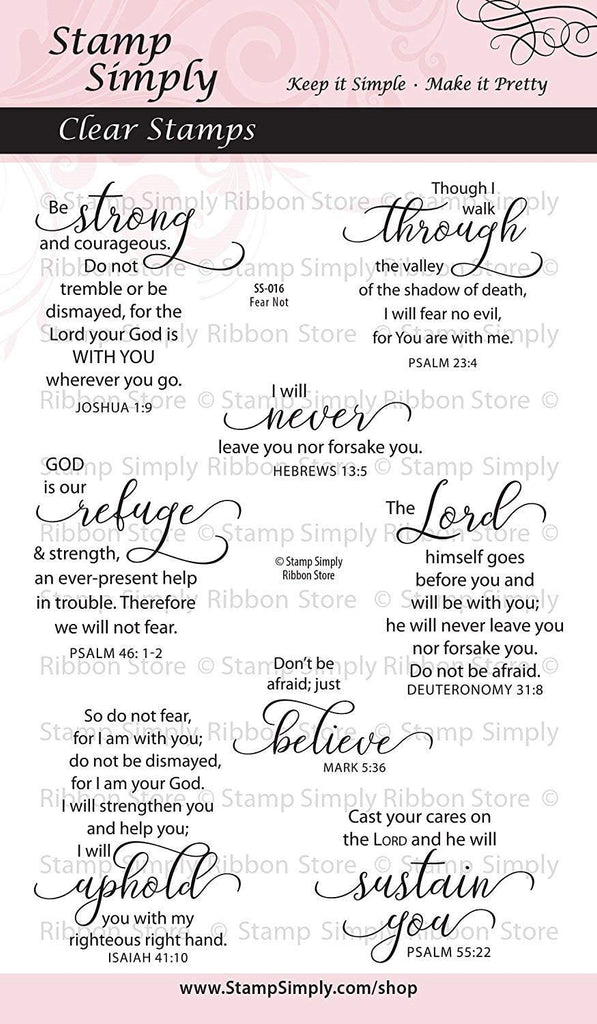 Stamp
Simply
Keep it Simple · Make it Pretty
Clear Stamps
Be strong
and courageous.
Do not
tremble or be
dismayed, for the
Lord your God is
WITH YOU
wherever you go.
JOSHUA 1:9
SS-016
Fear Not
Though I
walk
through
the valley
of the shadow of death,
I will fear no evil,
for You are with me.
PSALM 23:4
I will
never
leave you nor forsake you.
HEBREWS 13:5
GOD
is our
refuge
& strength,
an ever-present help
in trouble. Therefore
we will not fear.
PSALM 46: 1-2
© Stamp Simply
Ribbon Store
The Lord
himself goes
before you and
will be with you;
he will never leave you
nor forsake you.
Do not be afraid.
DEUTERONOMY 31:8
Don't be
afraid; just
believe
MARK 5:36
So do not fear,
for I am with you;
do not be dismayed,
for I am your God.
I will strengthen you
and help you;
I will
uphold
you with my
righteous right hand.
ISAIAH 41:10
Cast your cares on
the LORD and he will
sustain
you
PSALM 55:22
© Stamp Simply Ribbon Store © Stamp Simply
Ribbon Store © Stamp Simply Ribbon Store ©
www.StampSimply.com/shop